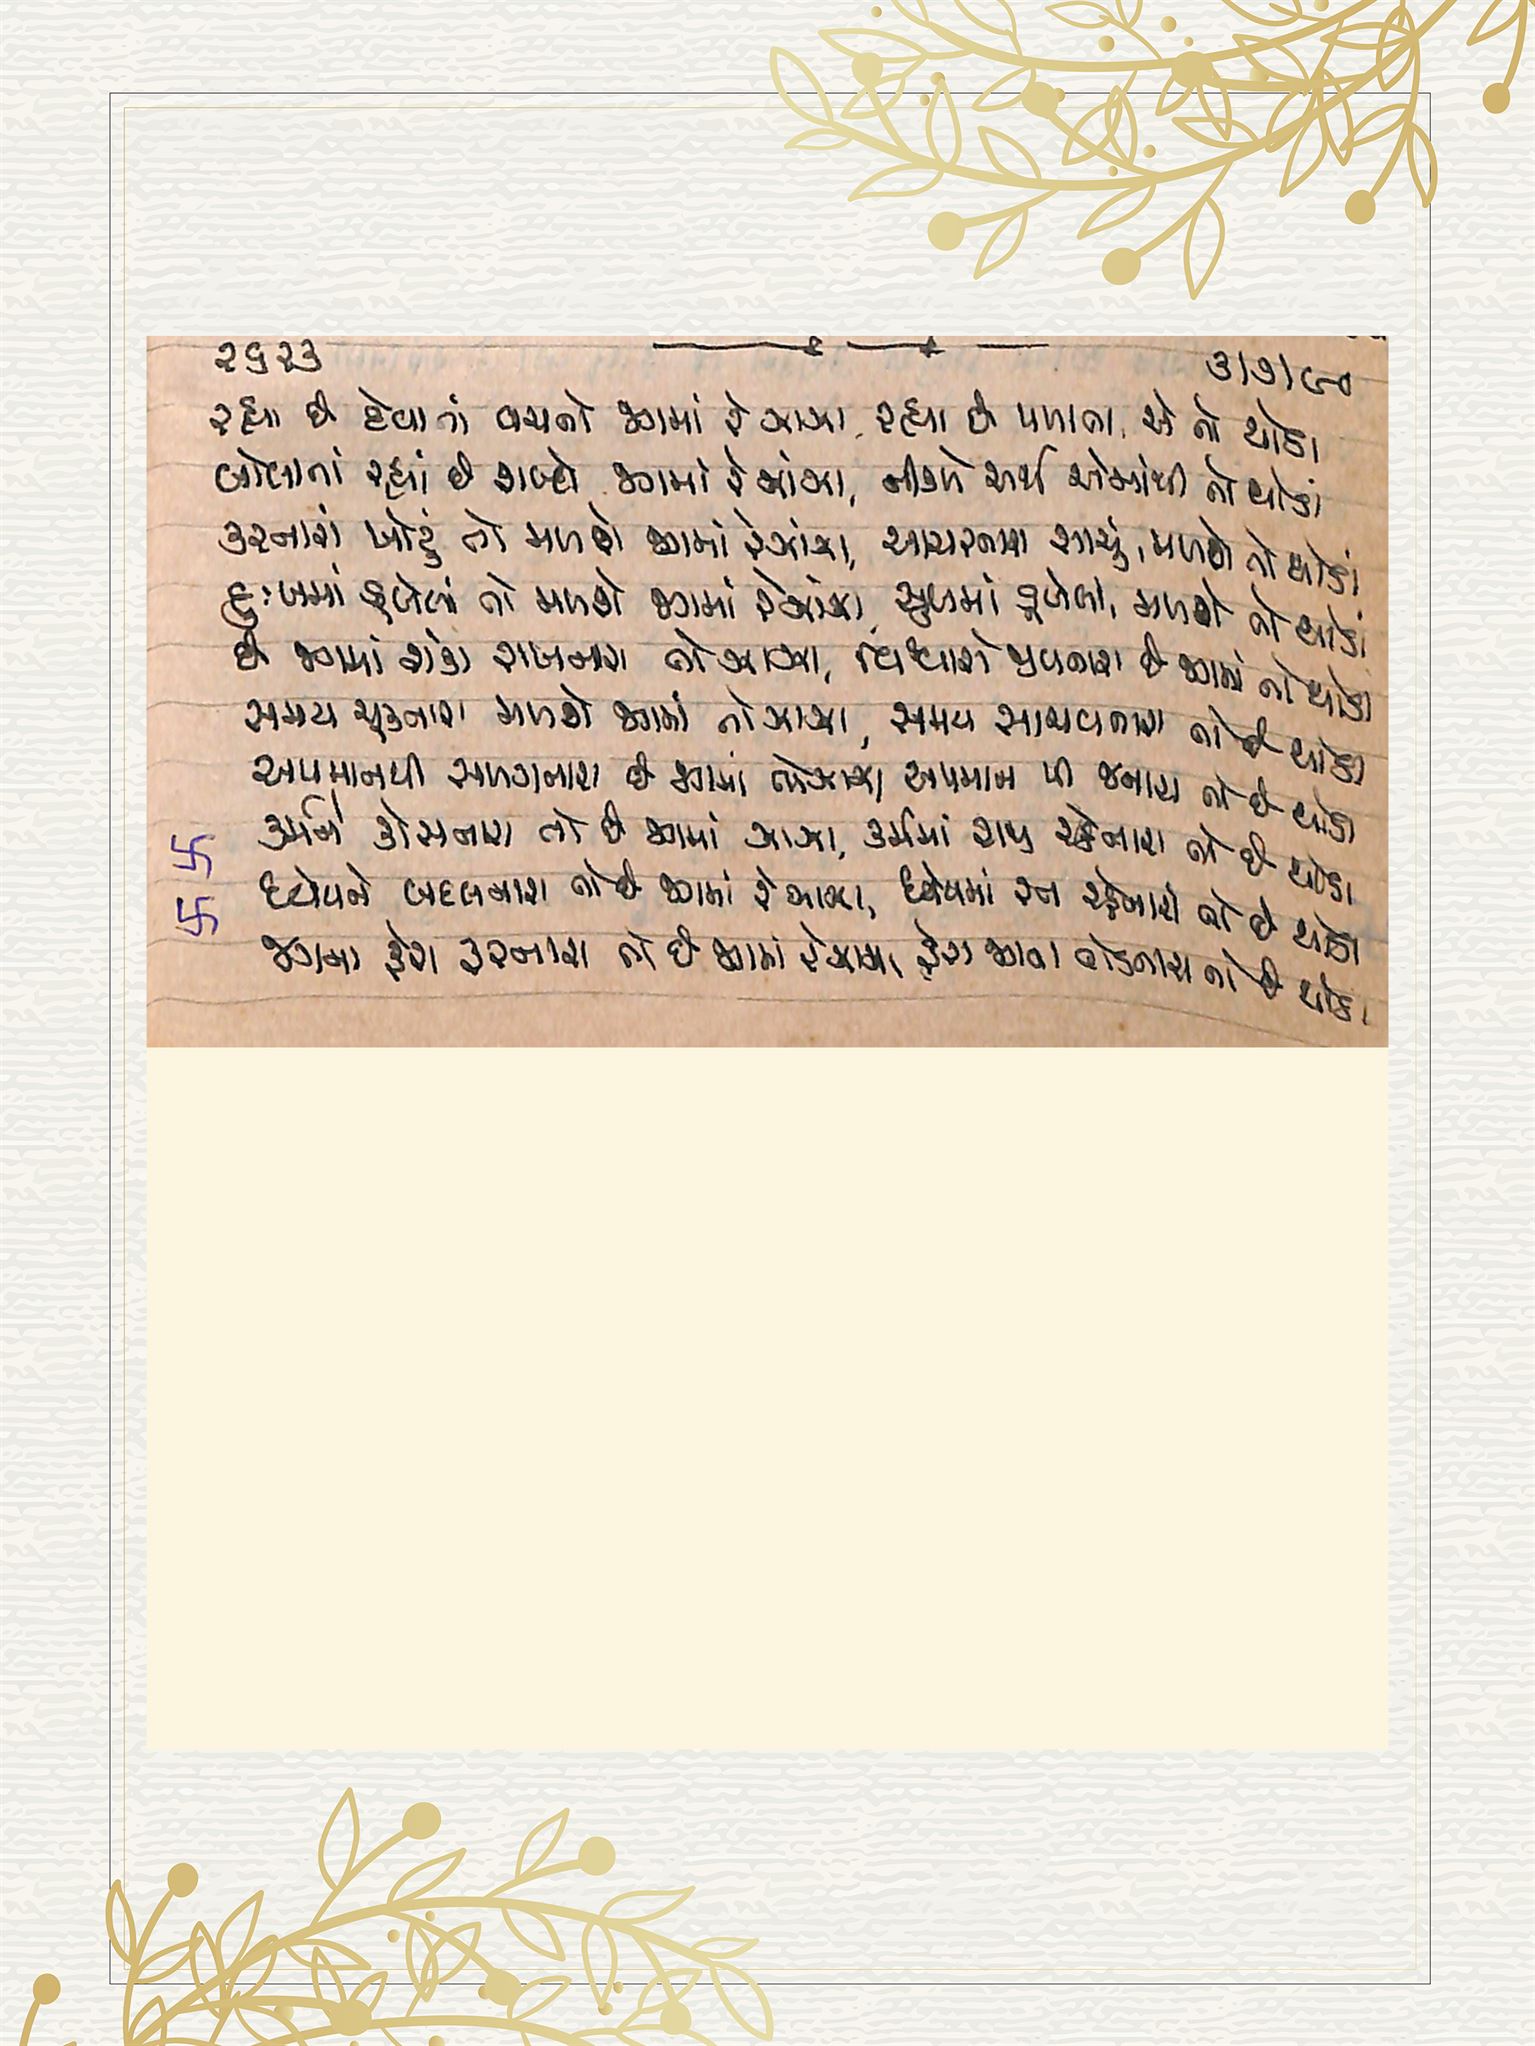 ૨૬૨૩
૩/૭/૯૦
રહ્યા છે દેવાતાં વચનો જગમાં રે ઝાઝા, રહ્યા છે પળાતા, એ તો થોડા
બોલાતાં રહ્યાં છે શબ્દો જગમાં રે ઝાંઝા, નીકળે અર્થ એમાંથી તો થોડાં
કરનારાં ખોટું તો મળશે જગમાં રે ઝાંઝા, આચરનારા સાચું, મળશે તો થોડાં
દુઃખમાં ડૂબેલાં તો મળશે જગમાં રે ઝાંઝા, સુખમાં ડૂબેલા, મળશે તો થોડાં
છે જગમાં શંકા રાખનારા તો ઝાઝા, વિશ્વાસે જીવનારા છે જગમાં તો થોડા
સમય ચૂકનારા મળશે જગમાં તો ઝાઝા, સમય સાચવનારા તો છે થોડા
અપમાનથી સળગનારા છે જગમાં તો ઝાઝા, અપમાન પી જનારા તો છે થોડા
કર્મને કોસનારા તો છે જગમાં ઝાઝા, કર્મમાં રાજી રહેનારા તો છે થોડા
ધ્યેયને બદલનારા તો છે જગમાં રે ઝાઝા, ધ્યેયમાં રત રહેનારા તો છે થોડા
જગમાં ફેરા કરનારા તો છે જગમાં રે ઝાઝા, ફેરા તોડનારા તો છે થોડા